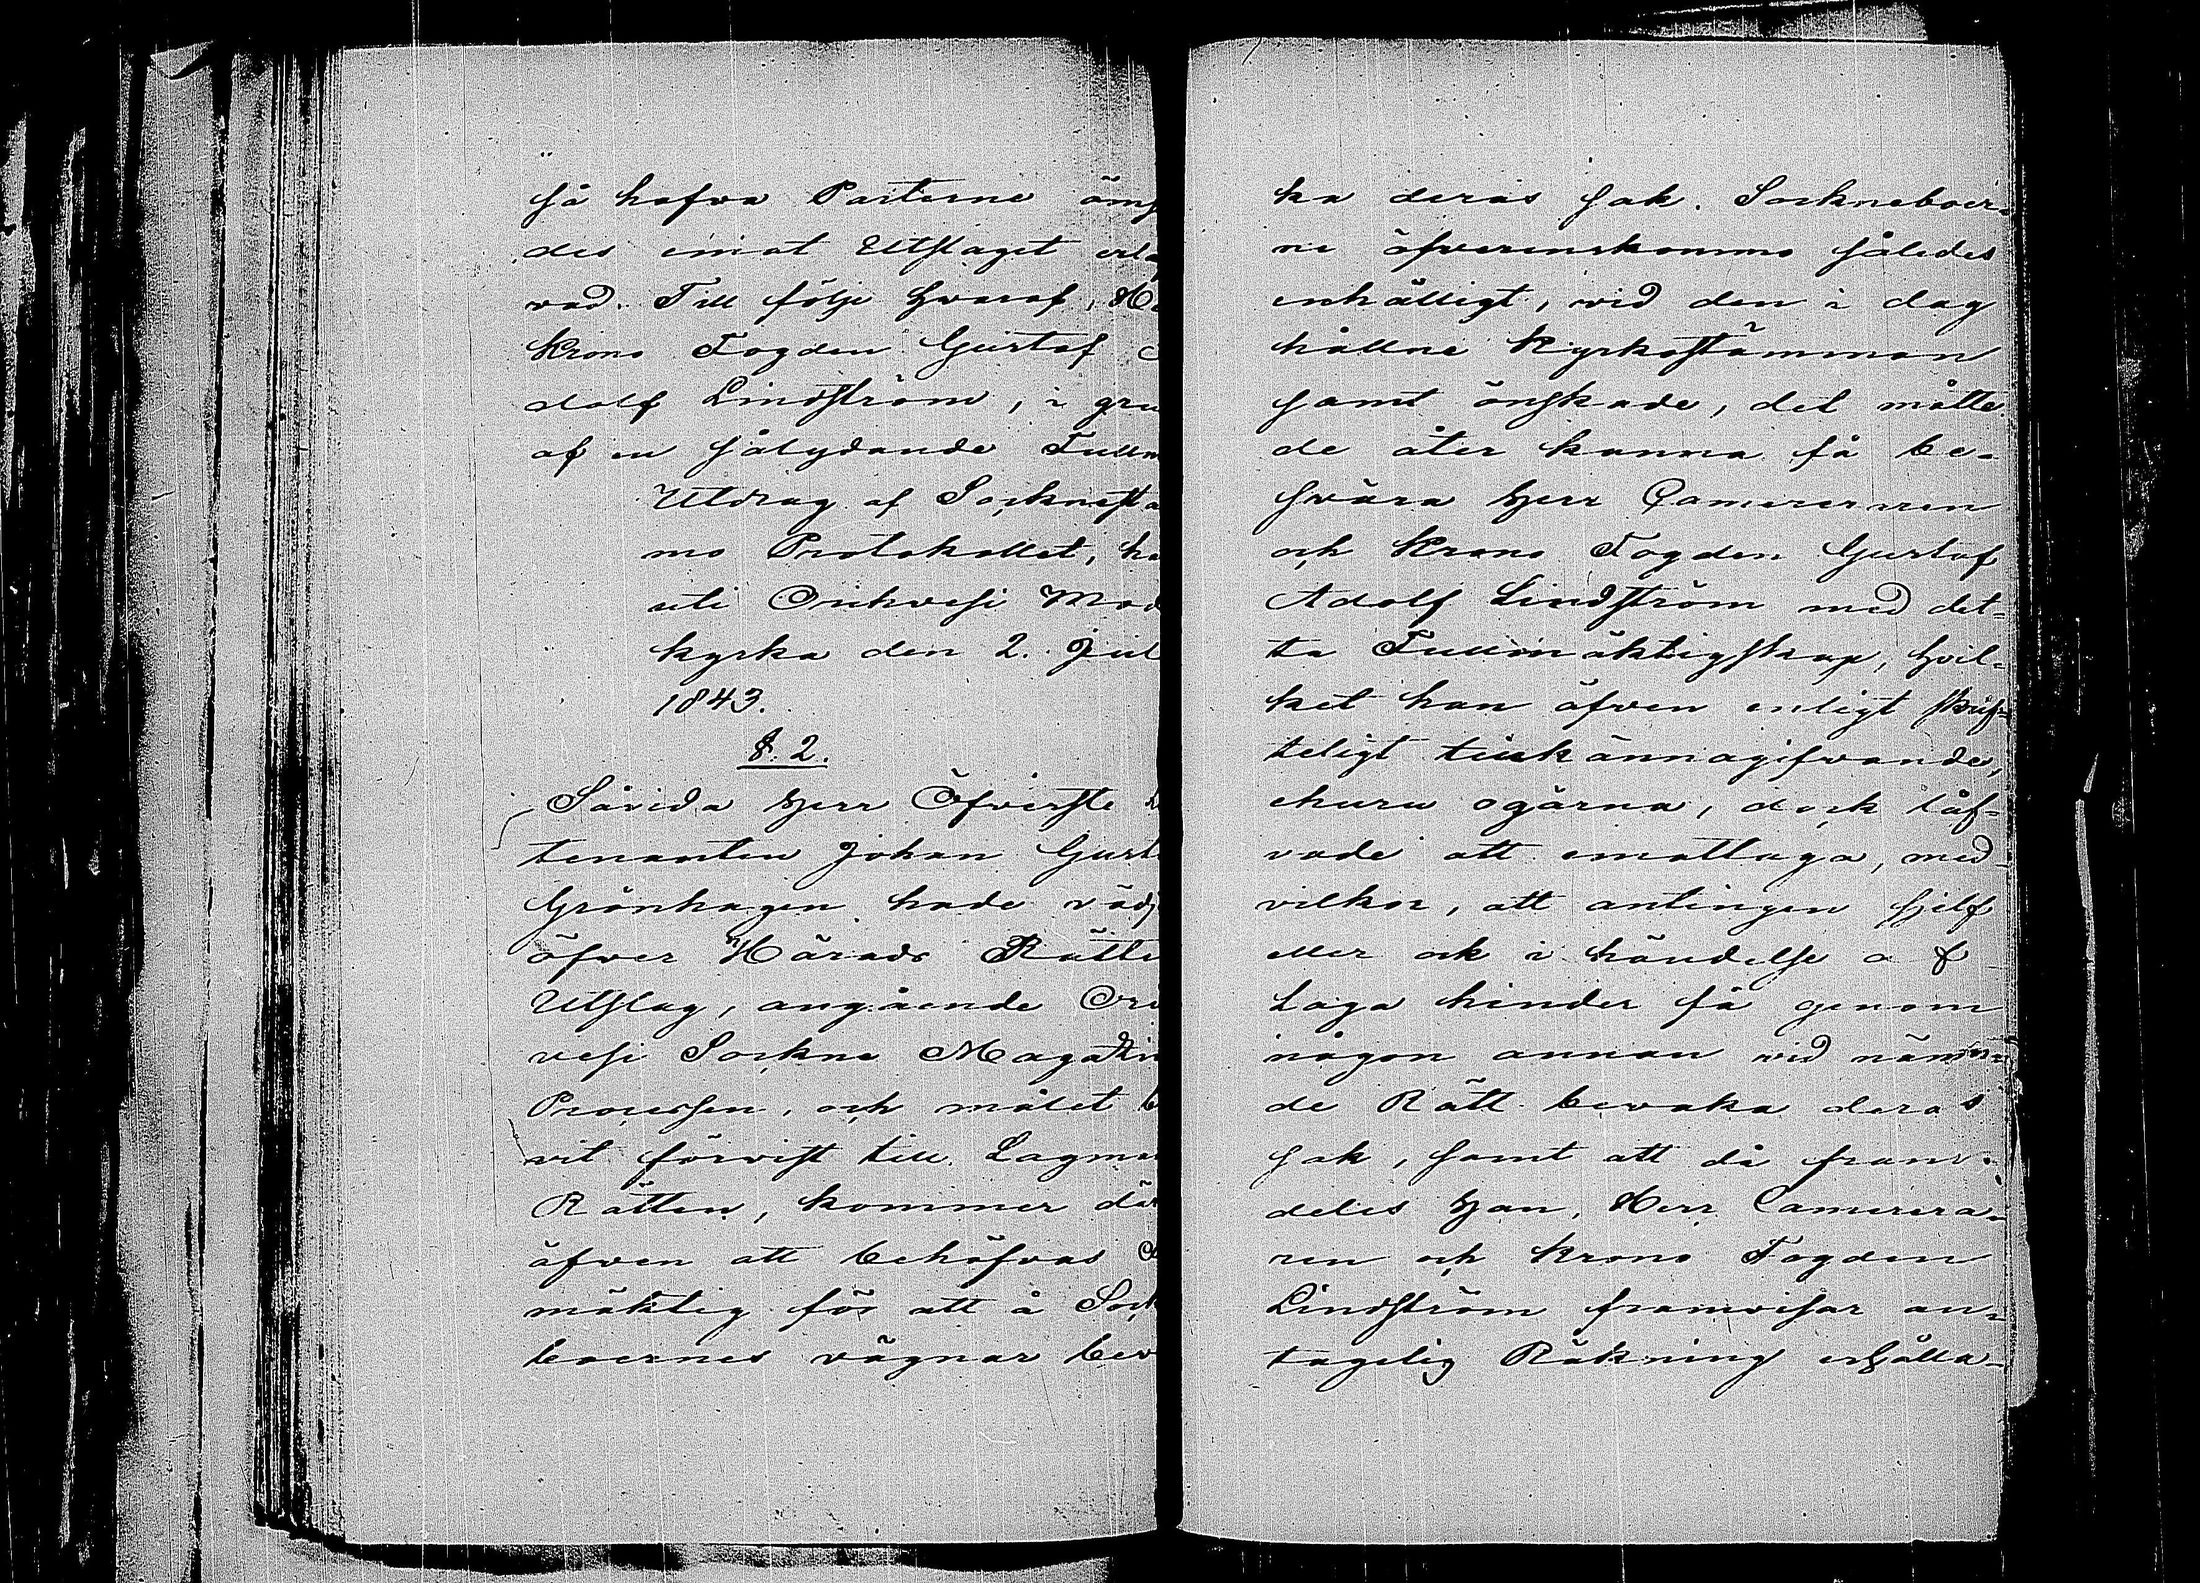 så hafva Parterne öms
des emot Utslaget erla
vad. Till följe hvaraf, He
Krono Fogden Gustaf
dolf Lindström, i gru
af en sålydande Fullm
Utdrag af Socknesta
mo Protokollet, hå
uti Orihvesi Mod
kyrka den 2. Jul
1843.
§. 2.
Såvida Herr Öfverste L
tenanten Johan Gust
Grönhagen hade vädj
öfver Härads Rätte
Utslag, angående Ori
vesi Sockne Magazin
Processen, och målet b
vit förvist till Lagma
Rätten, kommer där
äfven att behöfvas
mäktig för att å Sock
boernes vägnar bev
ka deras sak. Sockneboer-
ne öfverenskommo således
enhälligt, vid den i dag
hållne Kyrkostämman
samt önskade, det måtte
de åter kunna få be-
svära Herr Camereraren
och Krono Fogden Gustaf
Adolf Lindström med det-
ta Fullmäktigskap, hvil-
ket han äfven enligt skrif-
teligt tillkännagifvande,
ehuru ogärna, dock låf-
vade att emottaga, med
vilkor, att antingen sjelf
eller ock i händelse af
Laga hinder få genom
någon annan vid nämn-
de Rätt bevaka deras
sak, samt att då fram-
deles Han, Herr Camerera-
ren och Krono Fogden
Lindström framvisar an-
tagelig Räkning erhålla